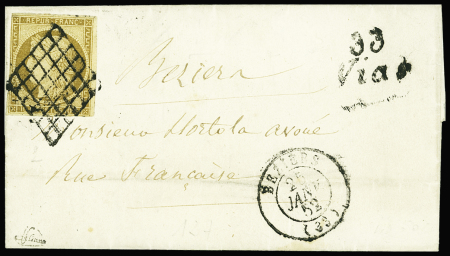 REPUB. FRANC.
33
Vias
Beziers
Monsieur Hortola avoué
Rue Française
BEZIERS
25
JANV.
52
(33)